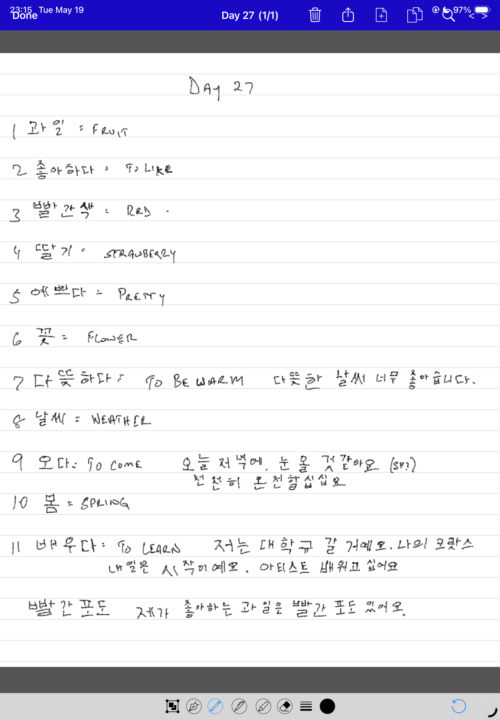 23:15 Tue May 19
97%
Done
Day 27 (1/1)
DAY 27
1 과일 = FRUIT
2 좋아하다 = TO LIKE
3 빨간색 = RED
4 딸기 = STRAWBERRY
5 예쁘다 = PRETTY
6 꽃 = FLOWER
7 다뜻하다 = TO BE WARM 다뜻한 날씨 너무 좋아습니다.
8 날씨 = WEATHER
9 오다 = TO COME 오늘 저녁에, 눈 올 것같아요 (SP?)
천천히 운전합십십요
10 봄 = SPRING
11 배우다 = TO LEARN 저는 대학규 갈 거예요. 나의
내일은 시작이예요. 아티스트 배워고 십어요
빨간 포도 제가 좋아하는 과일은 빨간 포도 있어요.